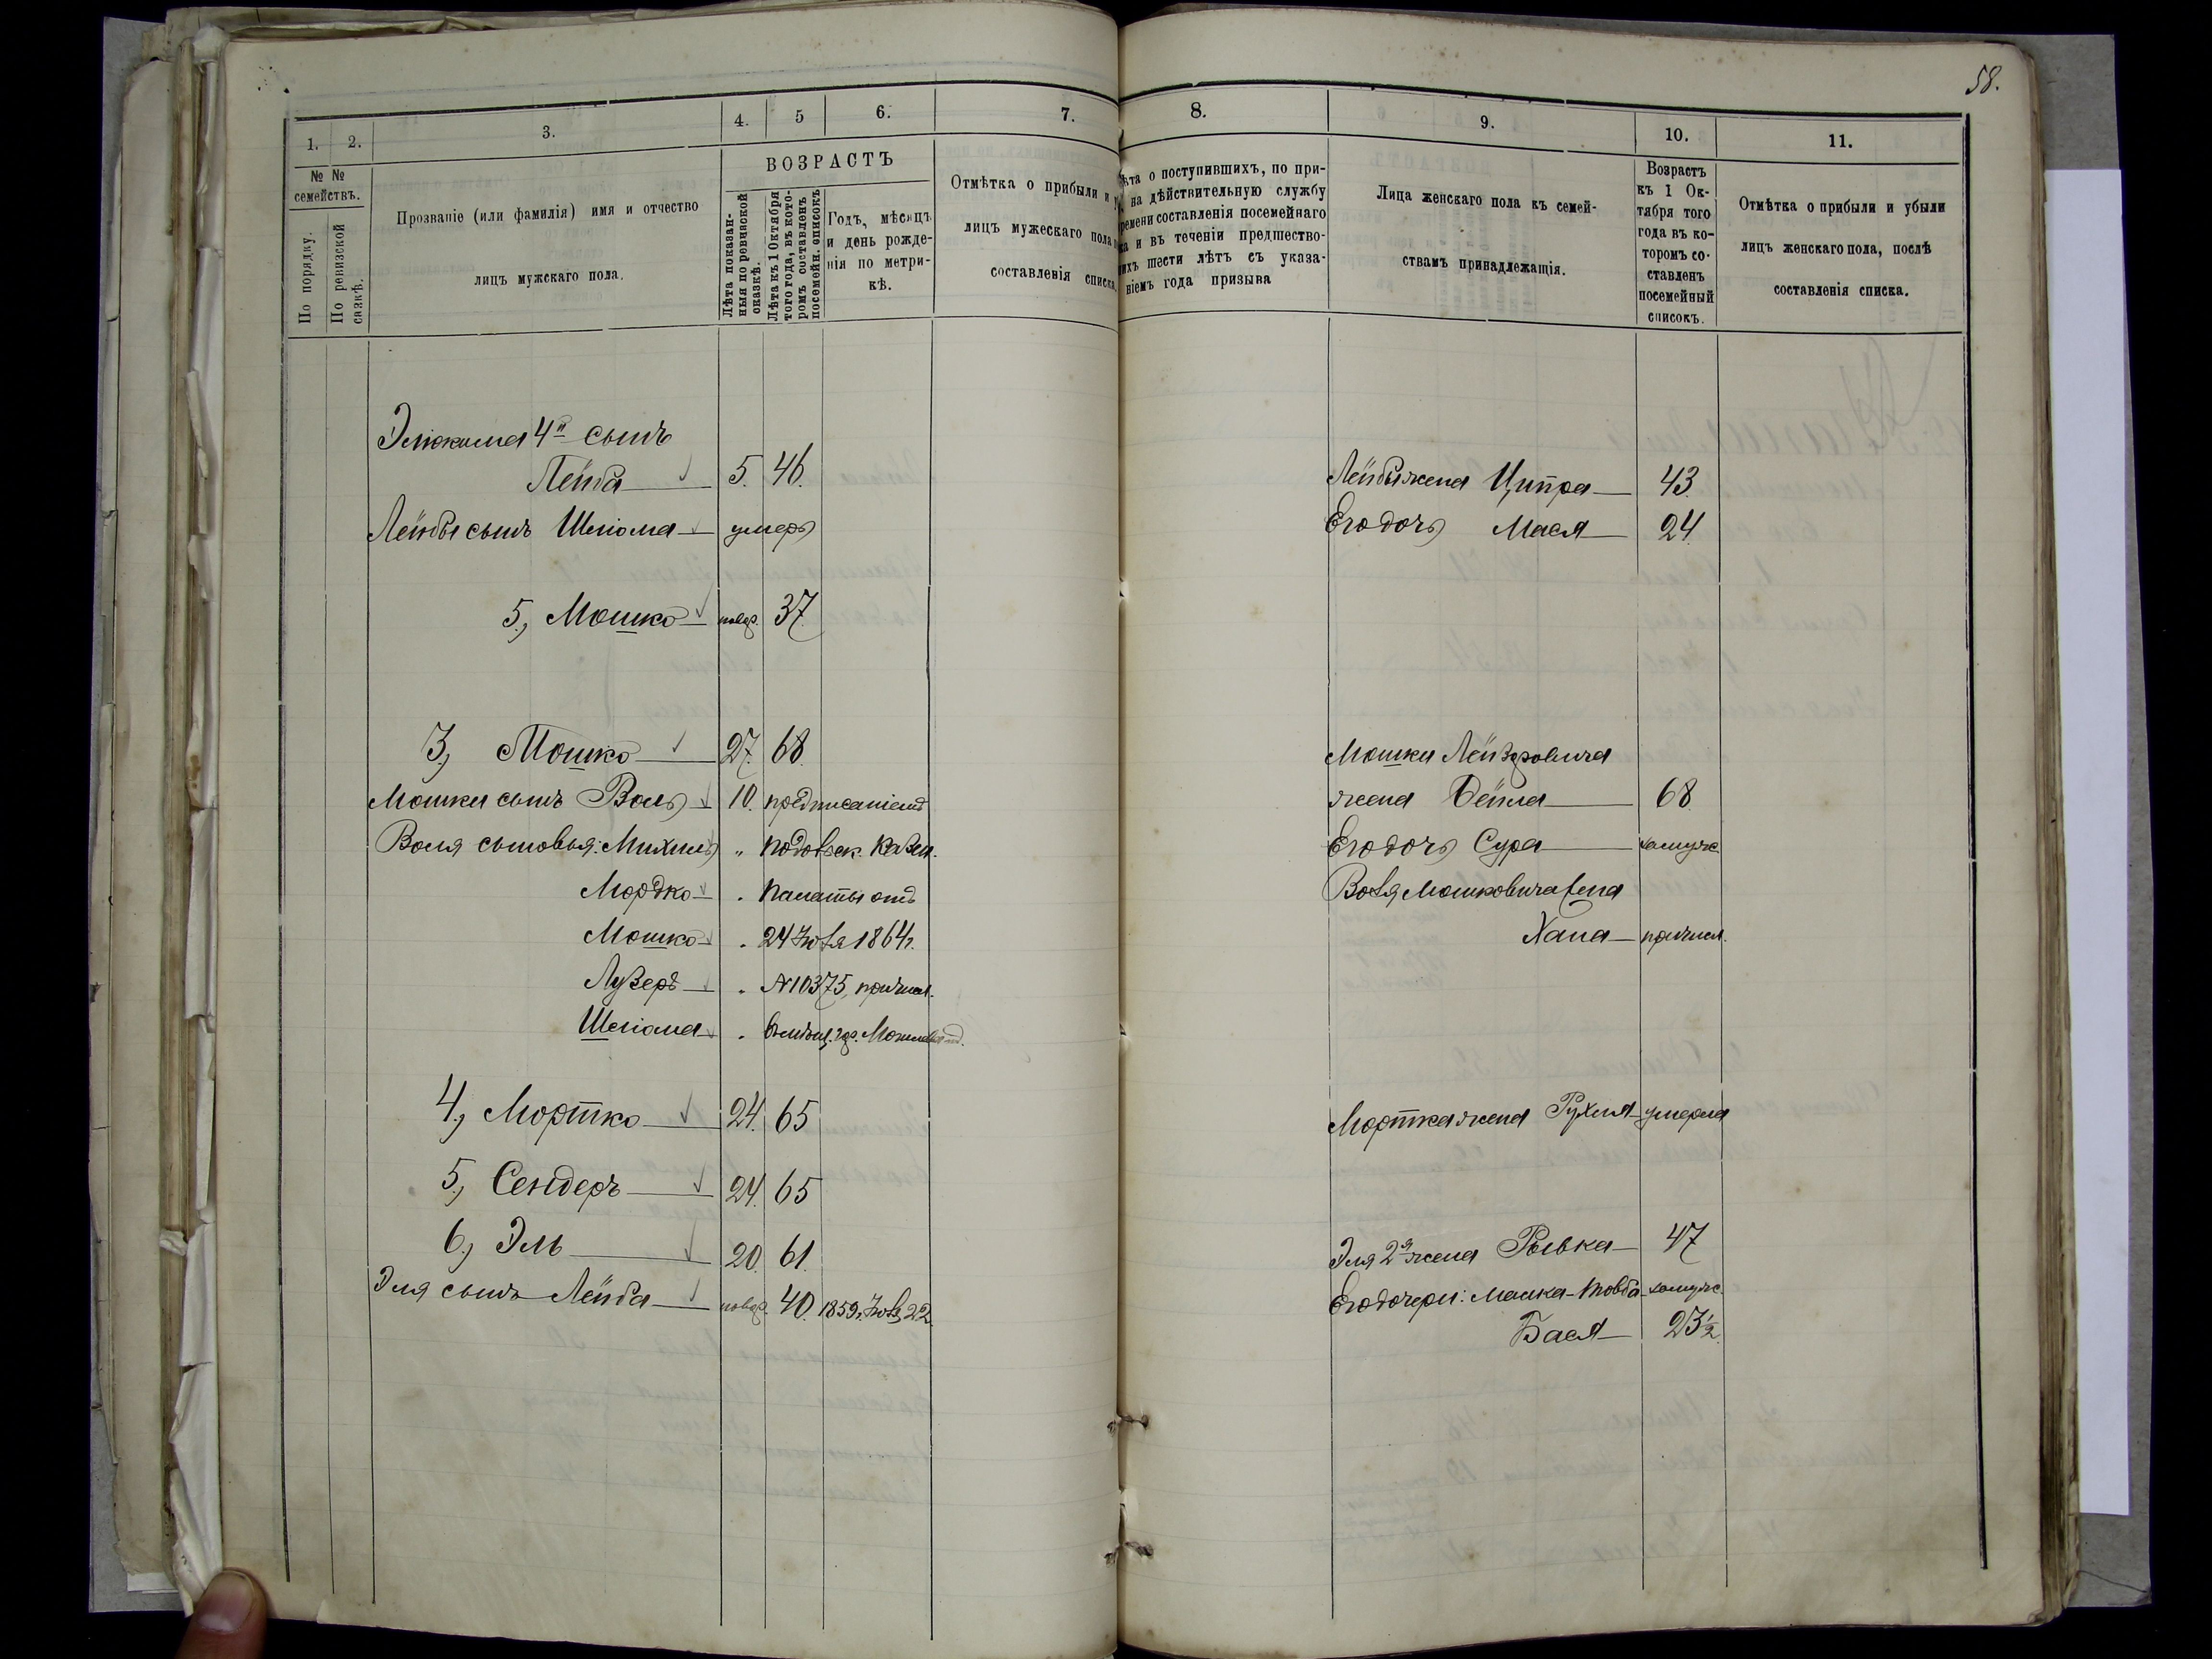 58.
1.
2.
3.
4.
5
6.
7.
8.
9.
10.
11.
№ №
семействъ.
По порядку.
По ревизской
сказкѣ.
Прозваніе (или фамилія) имя и отчество
лицъ мужскаго пола.
ВОЗРАСТЪ
Лѣта показан-
ныя по ревизской
сказкѣ.
Лѣта къ 1 Октября
того года, въ кото-
ромъ составленъ
посемейн. списокъ
Годъ, мѣсяцъ
и день рожде-
нія по метри-
кѣ.
Отмѣтка о прибыли и у
лицъ мужескаго пола п
составленія списка.
ѣта о поступившихъ, по при-
на дѣйствительную службу
ремени составленія посемейнаго
ка и въ теченіи предшество-
ихъ шести лѣтъ съ указа-
ніемъ года призыва
Лица женскаго пола къ семей-
ствамъ принадлежащія.
Возрастъ
къ 1 Ок-
тября того
года въ ко-
торомъ со-
ставленъ
посемейный
списокъ.
Отмѣтка о прибыли и убыли
лицъ женскаго пола, послѣ
составленія списка.
4й сынъ
Лейба 5. 46.
Лейбы жена Ципра 43.
Лейбы сынъ Шліома умеръ
Его дочь Мася 24
5, Мошко новор. 37.
3, Мошко 27. 68.
Мошки Лейзеровича
Мошки сынъ Воль 10. предписаніемъ
жена Бейла 68.
Воля сыновья: Михиль " Подольск. Казен.
Его дочь Сура замуж.
Мордко " Палаты отъ
Воля Мошковича жена
Мошко " 24 Іюля 1864 г.
Хана причисл.
Лузеръ " №10375, причисл.
Шліома " въ мѣщ. гор.
4, Мортко 24. 65
Мортка жена Рухля умерла
5, Сендеръ 24. 65
6, Эль 20. 61.
Эля 2я жена Рывка 47
Эля сынъ Лейба новор. 40. 1859 г. Іюля 22.
Его дочери: Малка-Товба замуж.
Бася 23½.